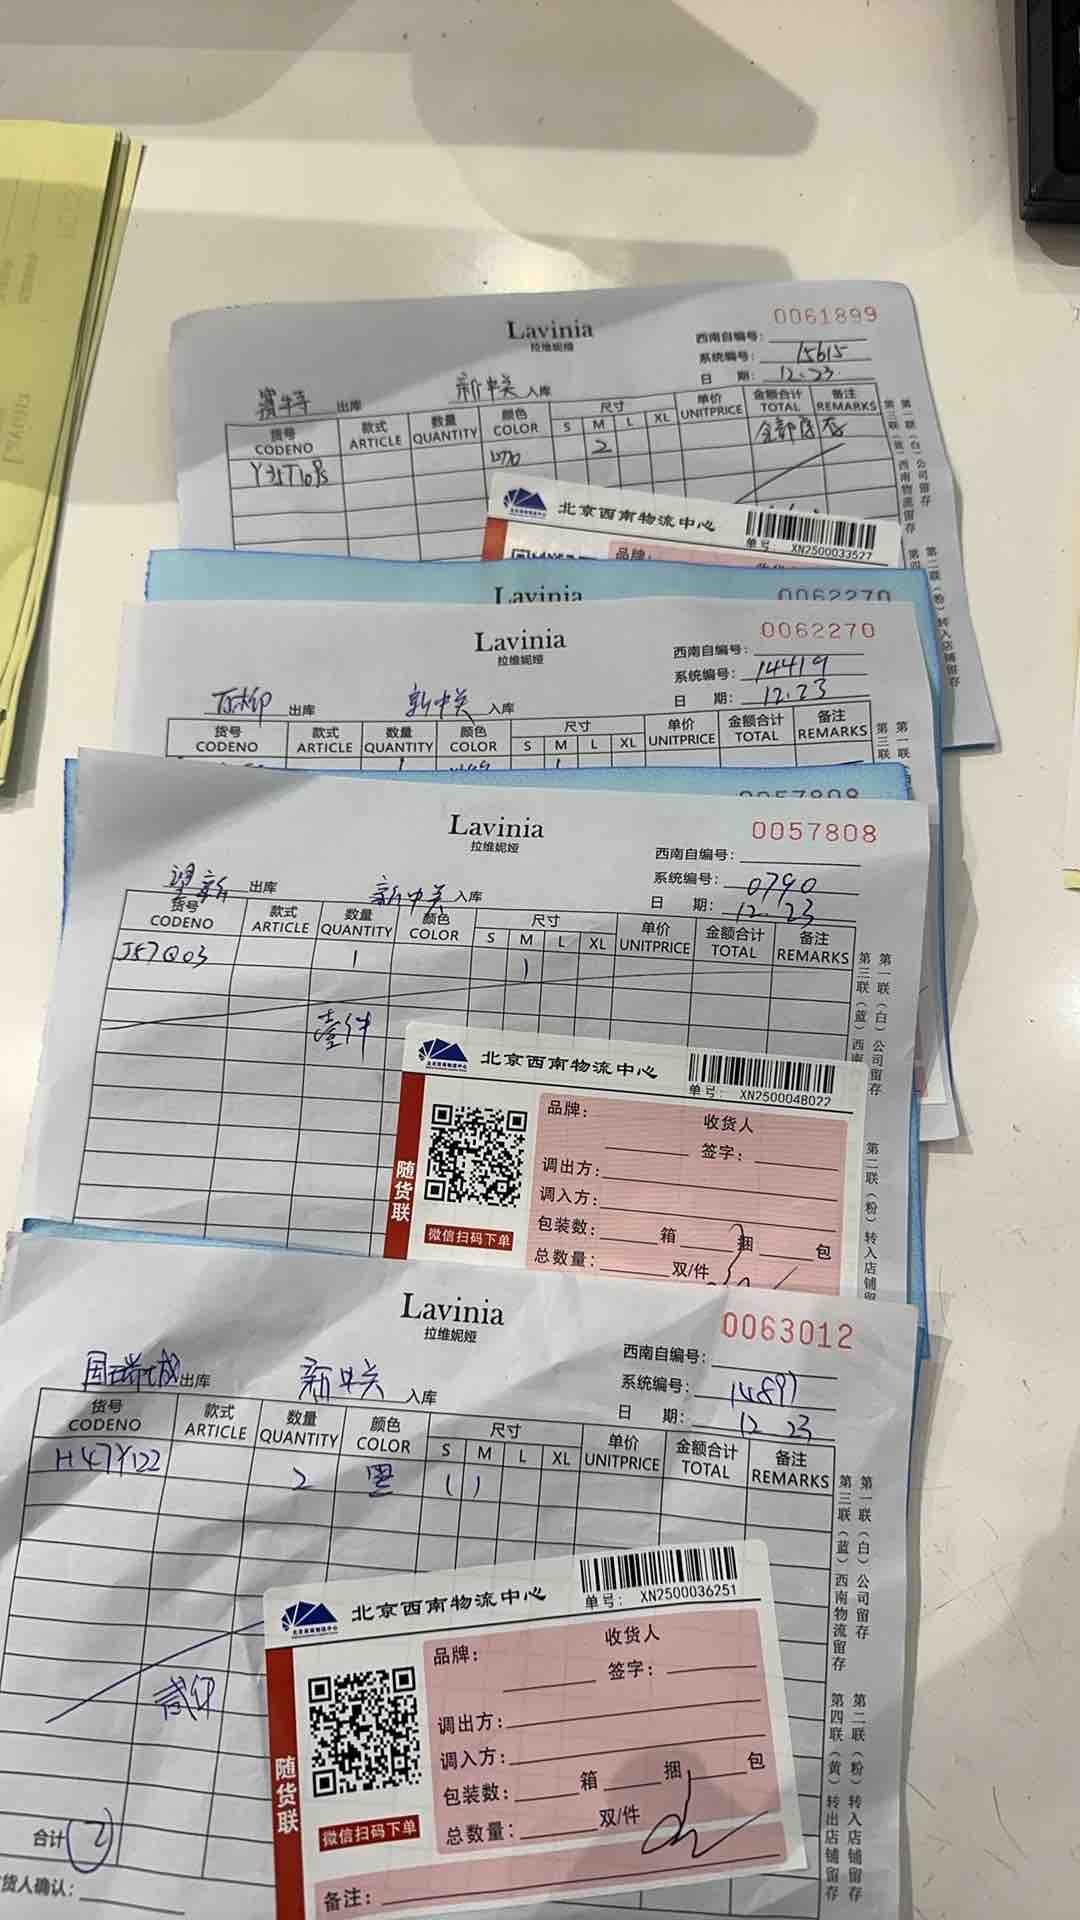 Lavinia
拉维妮娅
0061899
西南自编号:
系统编号: 15615
日 期: 12.23
出库 新中关 入库
货号 款式 数量 颜色 尺寸 单价 金额合计 备注
CODENO ARTICLE QUANTITY COLOR S M L XL UNITPRICE TOTAL REMARKS
2
第一联(白)公司留存
第三联(蓝)西南物流留存
第二联(粉)转入店铺留存
第四
北京西南物流中心
单号: XN2500033527
品牌:
Lavinia
0062270
Lavinia
拉维妮娅
0062270
西南自编号:
系统编号: 14419
日 期: 12.23
出库 新中关 入库
货号 款式 数量 颜色 尺寸 单价 金额合计 备注
CODENO ARTICLE QUANTITY COLOR S M L XL UNITPRICE TOTAL REMARKS
第一联
第三联
0057808
Lavinia
拉维妮娅
0057808
西南自编号:
系统编号: 0790
日 期: 12.23
望新 出库 新中关 入库
货号 款式 数量 颜色 尺寸 单价 金额合计 备注
CODENO ARTICLE QUANTITY COLOR S M L XL UNITPRICE TOTAL REMARKS
J57Q03 1 1
壹件
第一联(白)公司留存
第三联(蓝)西南
第二联(粉)转入店铺留
北京西南物流中心
单号: XN2500048022
随货联
微信扫码下单
品牌: 收货人
签字:
调出方:
调入方:
包装数: 箱 捆 包
总数量: 双/件
Lavinia
拉维妮娅
0063012
西南自编号:
系统编号: 14897
日 期: 12 23
国瑞城 出库 新中关 入库
货号 款式 数量 颜色 尺寸 单价 金额合计 备注
CODENO ARTICLE QUANTITY COLOR S M L XL UNITPRICE TOTAL REMARKS
H47Y122 2 黑 1 1
贰件
合计 2
货人确认:
第一联(白)公司留存
第三联(蓝)西南物流留存
第二联(粉)转入店铺留存
第四联(黄)转出店铺留存
北京西南物流中心
单号: XN2500036251
随货联
微信扫码下单
品牌: 收货人
签字:
调出方:
调入方:
包装数: 箱 捆 包
总数量: 双/件
备注: